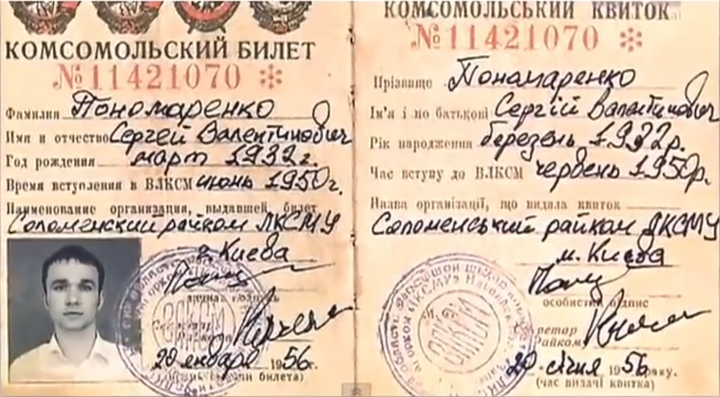 КОМСОМОЛЬСКИЙ БИЛЕТ
№11421070
Фамилия Пономаренко
Имя и отчество Сергей Валентинович
Год рождения март 1932 г.
Время вступления в ВЛКСМ июнь 1950 г.
Наименование организации, выдавшей билет
Соломенский райком ЛКСМУ
г. Киева
20 января 1956 г.
билета)
КОМСОМОЛЬСЬКИЙ КВИТОК
№11421070
Прізвище Пономаренко
Ім'я і по батькові Сергій Валентинович
Рік народження березень 1932 р.
Час вступу до ВЛКСМ червень 1950 р.
Назва організації, що видала квиток
Соломенський райком ЛКСМУ
м. Києва
особистий підпис
Райком
20 січня 1956 року.
(час видачі квитка)